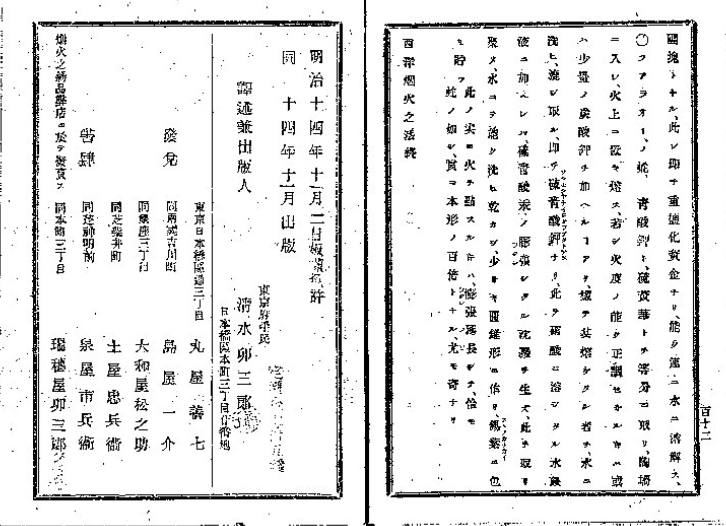 固塊トナル、此レ即チ重塩化黄金ナリ、能ク水ニ溶解ス、
◯フアラオー、ノ蛇、青酸鉀ト硫黄華トヲ等分ニ取リ、陶堝
ニ入レ、火上ニ熔ス、若シ火度ノ能ク正調セザルトキハ或
ハ少量ノ炭酸鉀ヲ加ヘルコアリ、者ヲ、水ニ
洗ヒ、漉シ取ル、即チ硫青酸鉀ナリ、此ヲ硝酸ニ溶シタル水銀
液ニ加フレバ硫青酸汞ノ膨張シタル沈澱ヲ生ズ、此ヲ取リ
聚メ、水ニテ能ク洗ヒ乾カシ少シキ圓錐形ニ作リ、錫葉ニ包
ミ貯フ
此ノ尖ニ火ヲ點スルトキハ膨張延長シテ、恰モ
蛇ノ如シ、實ニ本形ノ百倍トナル、尤モ奇ナリ
西洋烟火之法終
百十二
明治十四年十一月二日版權免許
同 十四年十一月出版
譯述兼出版人
東京府平民
清水卯三郎
日本橋區本町三丁目廿番地
發兌
東京日本橋區通三丁目
丸屋善七
同兩國吉川町
島屋一介
同銀座三丁目
大和屋松之助
同芝櫻井町
土屋忠兵衛
書肆
同芝神明前
泉屋市兵衛
烟火之藥品弊店ニ於テ發賣ス
同本町三丁目
瑞穗屋卯三郎